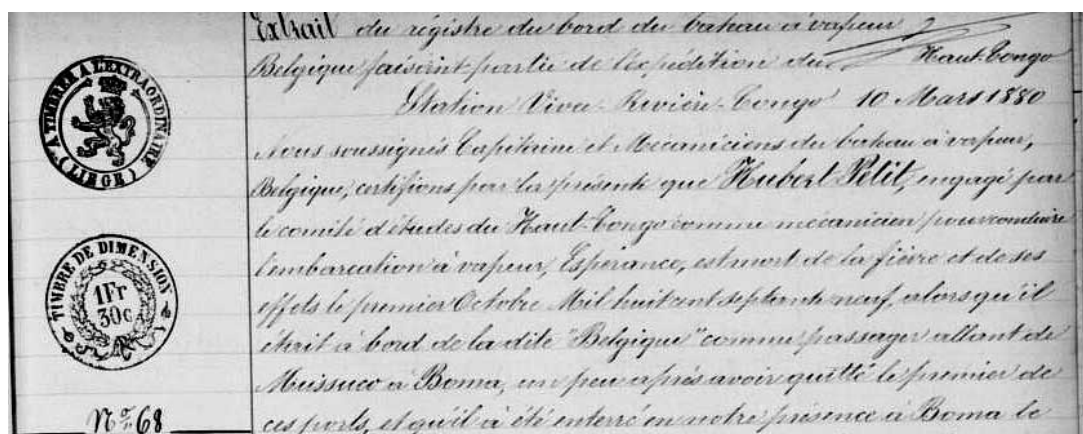 Extrait du régistre du bord du bateau à vapeur
Belgique faisant partie de l'expédition du Haut-Congo
Station Vivi-Rivière-Congo 10 Mars 1880
Nous soussignés Capitaine et Mécaniciens du bateau à vapeur,
Belgique, certifions par la présente que Hubert Petit, engagé par
le comité d'études du Haut-Congo comme mécanicien pour conduire
l'embarcation à vapeur, Espérance, est mort de la fièvre et de ses
effets le premier Octobre Mil huit cent septante neuf, alors qu'il
était à bord de la dite "Belgique" comme passager allant de
Muissuco à Boma, un peu après avoir quitté le premier de
ces ports, et qu'il à été enterré en notre présence à Boma le
A TIMBRER A L'EXTRAORDINAIRE
(LIEGE)
TIMBRE DE DIMENSION
1Fr
30c
No 68